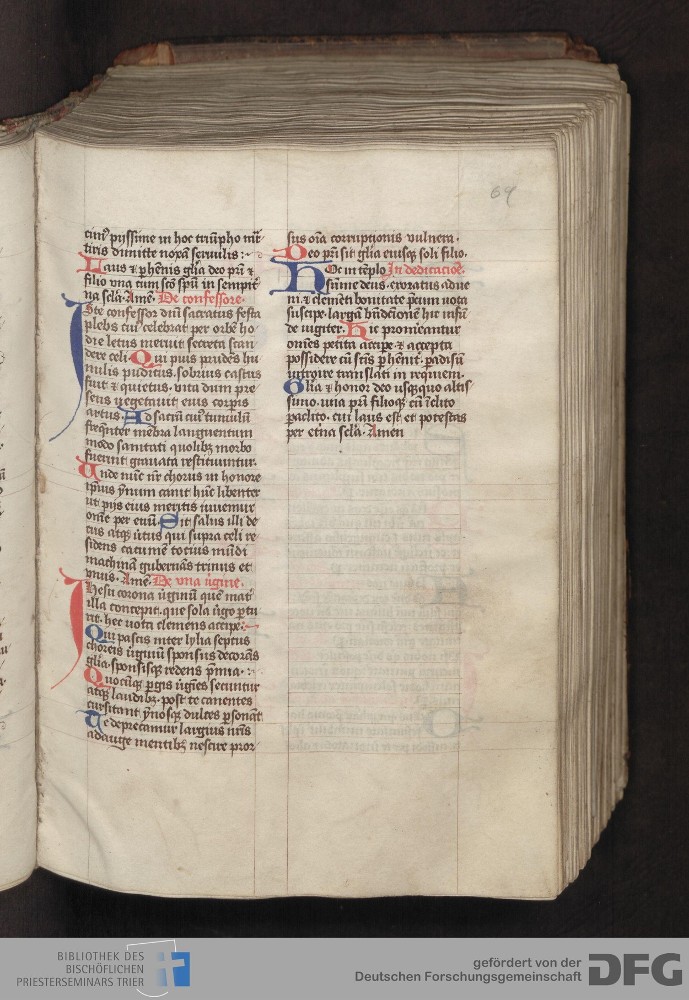 69
cim9 pijssime in hoc triu̅pho mr̅
tiris dimitte noxa̅ seruilis :~
Laus ⁊ ꝑhe̅nis gl̅ia deo pr̅i ⁊
filio vna cum sc̅o sp̅u in sempit̅
na sc̅la. Ame̅. De confessore.
Iste confessor dn̅i sacratus festa
plebs cui9 celebrat per orbe̅ ho
die letus meruit secreta scan
dere celi. Qui pius prude̅s hu
milis pudicus. sobrius castus
fuit ⁊ quietus. vita dum pre
sens vegetauit eius corꝑis
artus. Ad sacru̅ cui9 tumulu̅
freque̅ter me̅bra languentum
modo sanitati quolibꝫ morbo
fuerint grauata restituuntur.
Unde nu̅c nr̅ chorus in honore
ipsius ymnum canit hu̅c libenter
ut pijs eius meritis iuuemur
om̅e per euu̅. Sit salus illi de
cus atqꝫ u̅tus qui supra celi re
sidens cacume̅ tocius mu̅di
machina̅ guberna̅s trinus et
vnus. Ame̅. De vna u̅gine.
Ihesu corona u̅ginu̅ que̅ mat̅
illa concepit. que sola u̅go ꝑtu
rit. hec uota clemens accipe :~
Qui pascis inter lylia septus
choreis u̅ginu̅ sponsus decora̅s
gl̅ia. sponsisqꝫ redens p̅mia.
Quocu̅qꝫ ꝑgis u̅gi̅es secuntur
atqꝫ laudibꝫ. post te canentes
cursitant ymnosqꝫ dulces ꝑsona̅t
Te deprecamur largius nr̅is
adauge mentibꝫ nescire pror
sus oi̅a corruptionis vulnera.
Deo pr̅i sit gl̅ia eiusqꝫ soli filio.
Hoc in te̅plo In dedicacio̅e.
su̅me deus. exoratus adue
ni. ⁊ cleme̅ti bonitate p̅cum uota
suscipe. larga̅ bn̅dictio̅em hic infu̅
de iugiter. Hic promereantur
om̅es petita accipe̅ ⁊ accepta
possidere cu̅ sc̅is ꝑhe̅nit̅. ꝑadisu̅
introire translati in requiem.
Gl̅ia ⁊ honor deo usqꝫquo altis
simo. una pr̅i filioqꝫ cu̅ i̅clito
ꝑaclito. cui laus est et potestas
per et̅na sc̅la. Amen
BIBLIOTHEK DES
BISCHÖFLICHEN
PRIESTERSEMINARS TRIER
gefördert von der
Deutschen Forschungsgemeinschaft
DFG